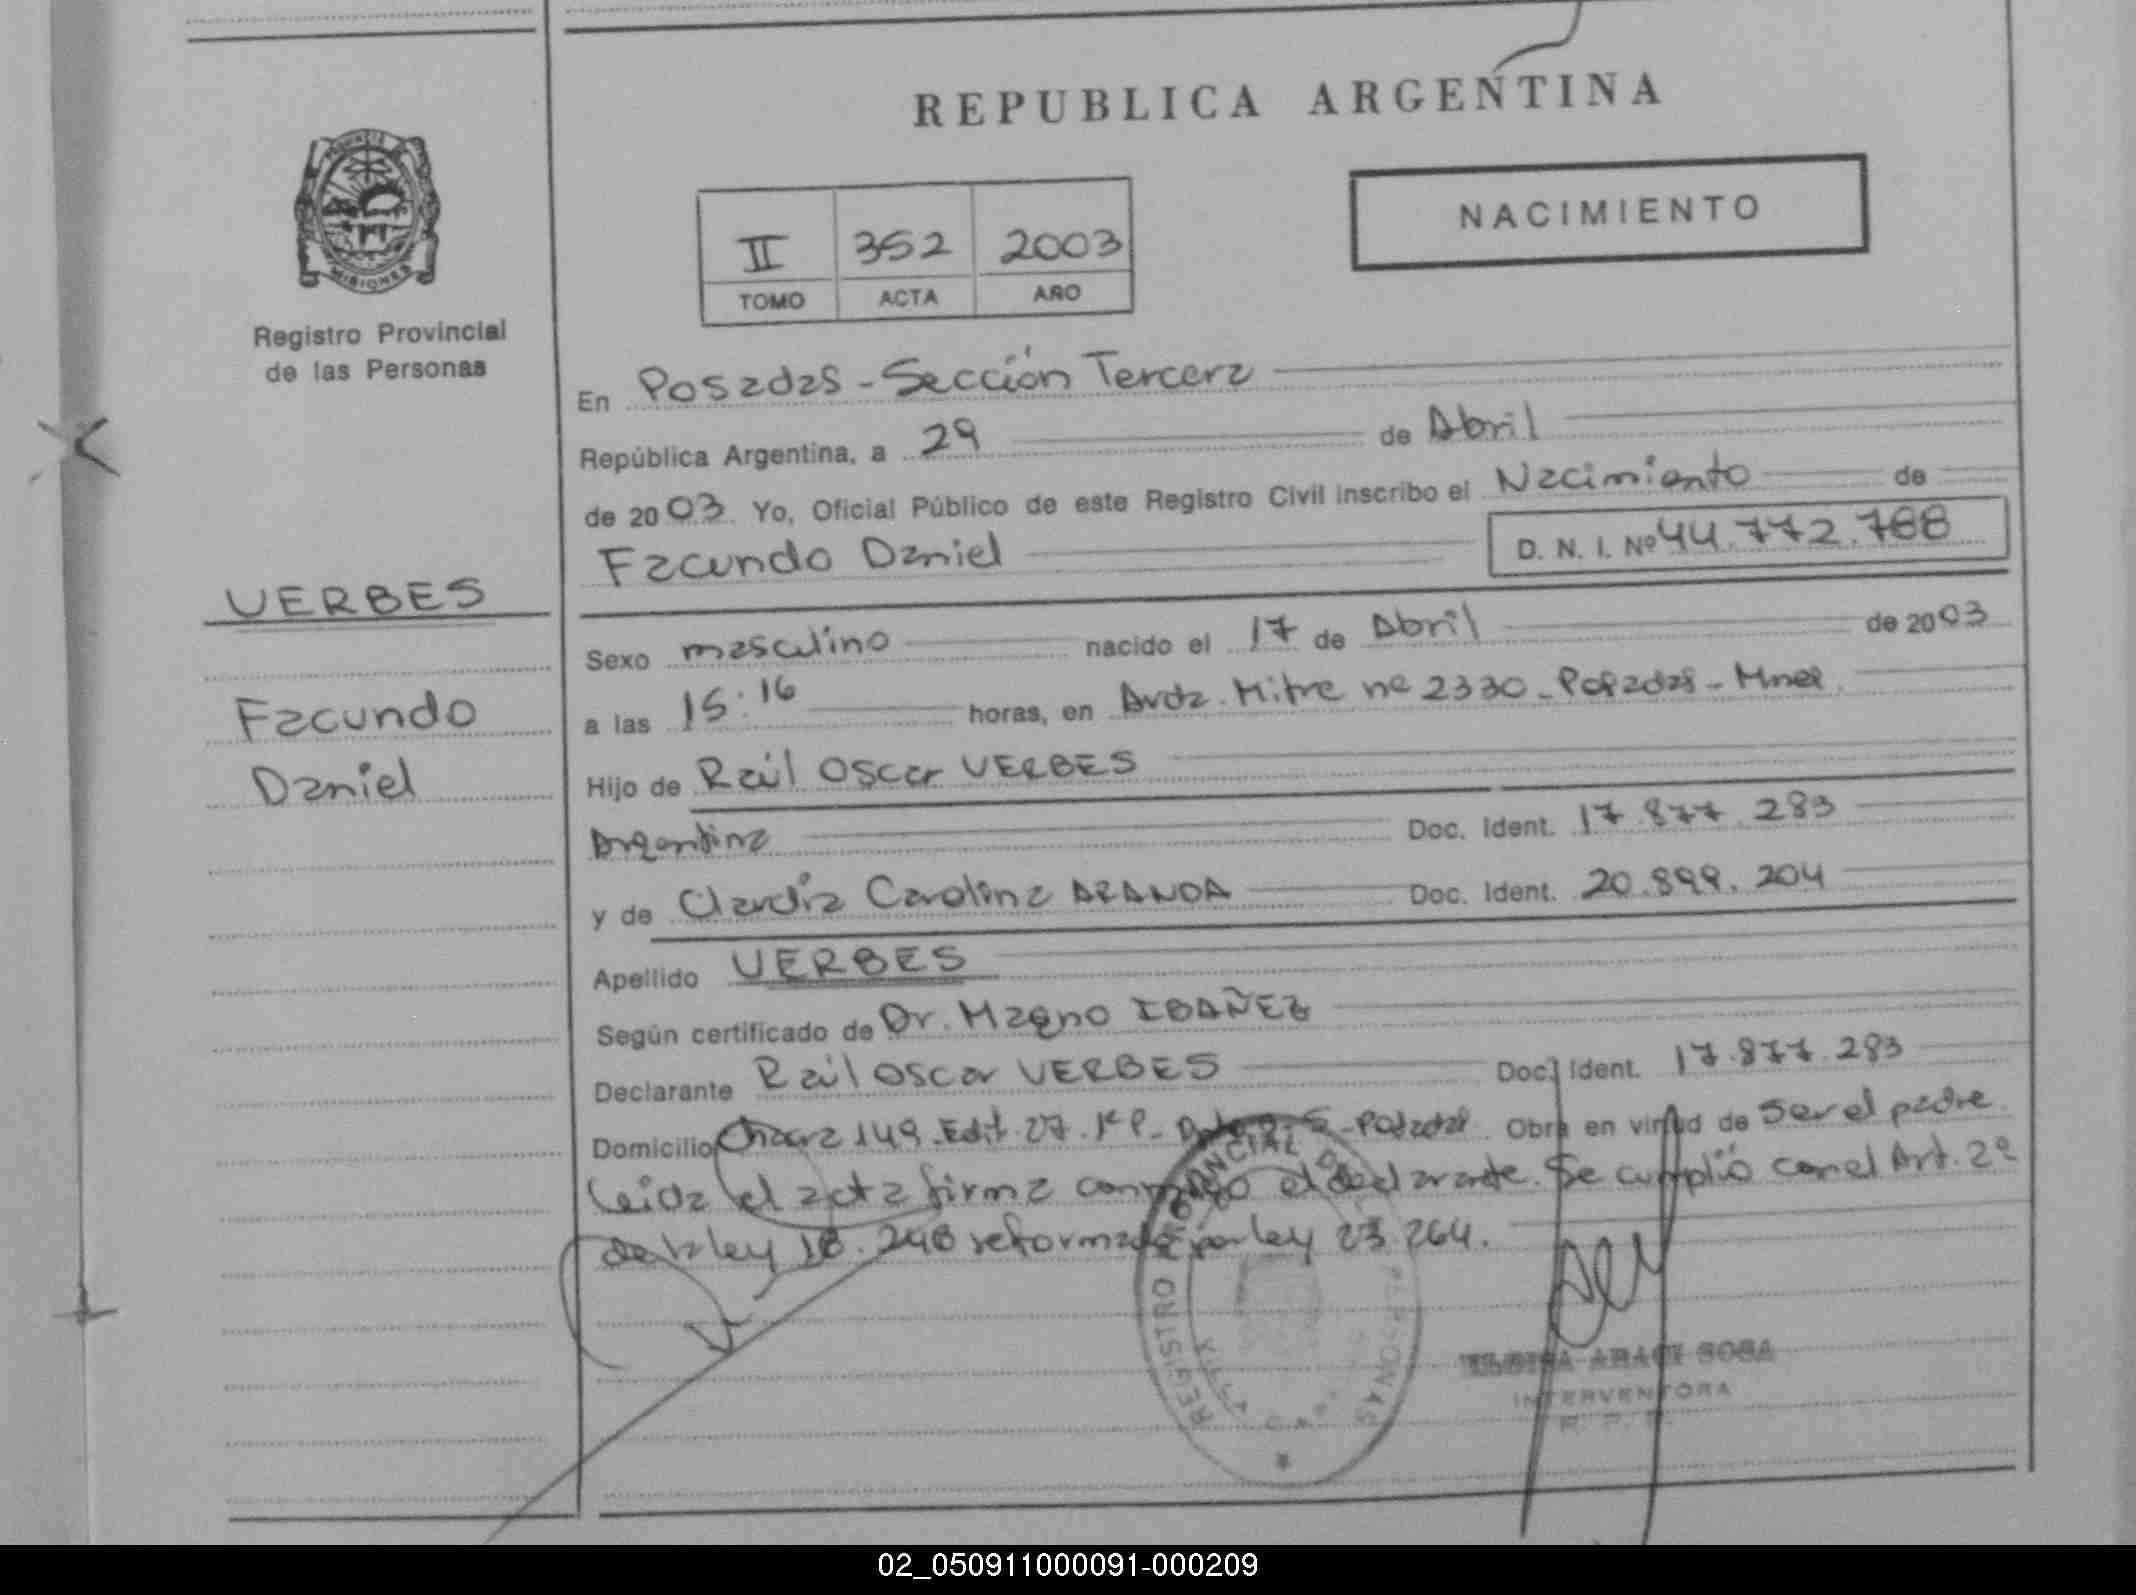 REPUBLICA ARGENTINA
PROVINCIA
MISIONES
Registro Provincial
de las Personas
II 352 2003
TOMO ACTA AÑO
NACIMIENTO
En Posadas - Sección Tercera
República Argentina, a 29 de Abril
de 2003 Yo, Oficial Público de este Registro Civil inscribo el Nacimiento de
Facundo Daniel D. N. I. Nº 44.772.788
VERBES
Facundo
Daniel
Sexo masculino nacido el 17 de Abril de 2003
a las 15:16 horas, en Avda. Mitre nº 2330 - Posadas - Mnes.
Hijo de Raúl Oscar VERBES
Argentina Doc. Ident. 17.877.283
y de Claudia Carolina ARANDA Doc. Ident. 20.899.204
Apellido VERBES
Según certificado de Dr. Magno IBAÑEZ
Declarante Raúl Oscar VERBES Doc. Ident. 17.877.283
Domicilio Chacra 149 - Edif. 27 - 1º P - Posadas Obra en virtud de ser el padre.
Leída el acta firma conmigo el declarante. Se cumplió con el Art. 2º
de la ley 18.248 reformada por ley 23.264.
REGISTRO PROVINCIAL DE PERSONAS
ARACI SOSA
INTERVENTORA
R. P. P.
02_050911000091-000209